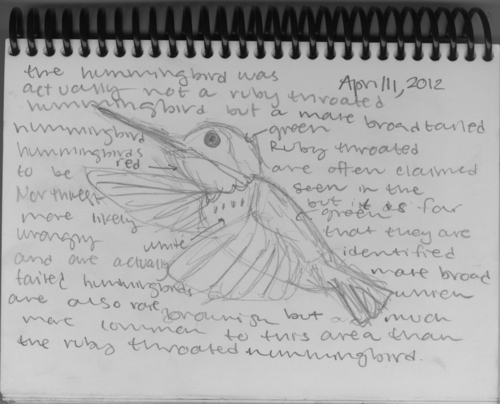 the hummingbird was
April 11, 2012
actually not a ruby throated
hummingbird but a mate broadtailed
hummingbird green Ruby throated
hummingbirds are often claimed
to be red seen in the
Northwest but it is far
more likely green that they are
wrongly white identified
and are actually mate broad
tailed hummingbirds which
are also rare brownish but are much
more common to this area than
the ruby throated hummingbird.